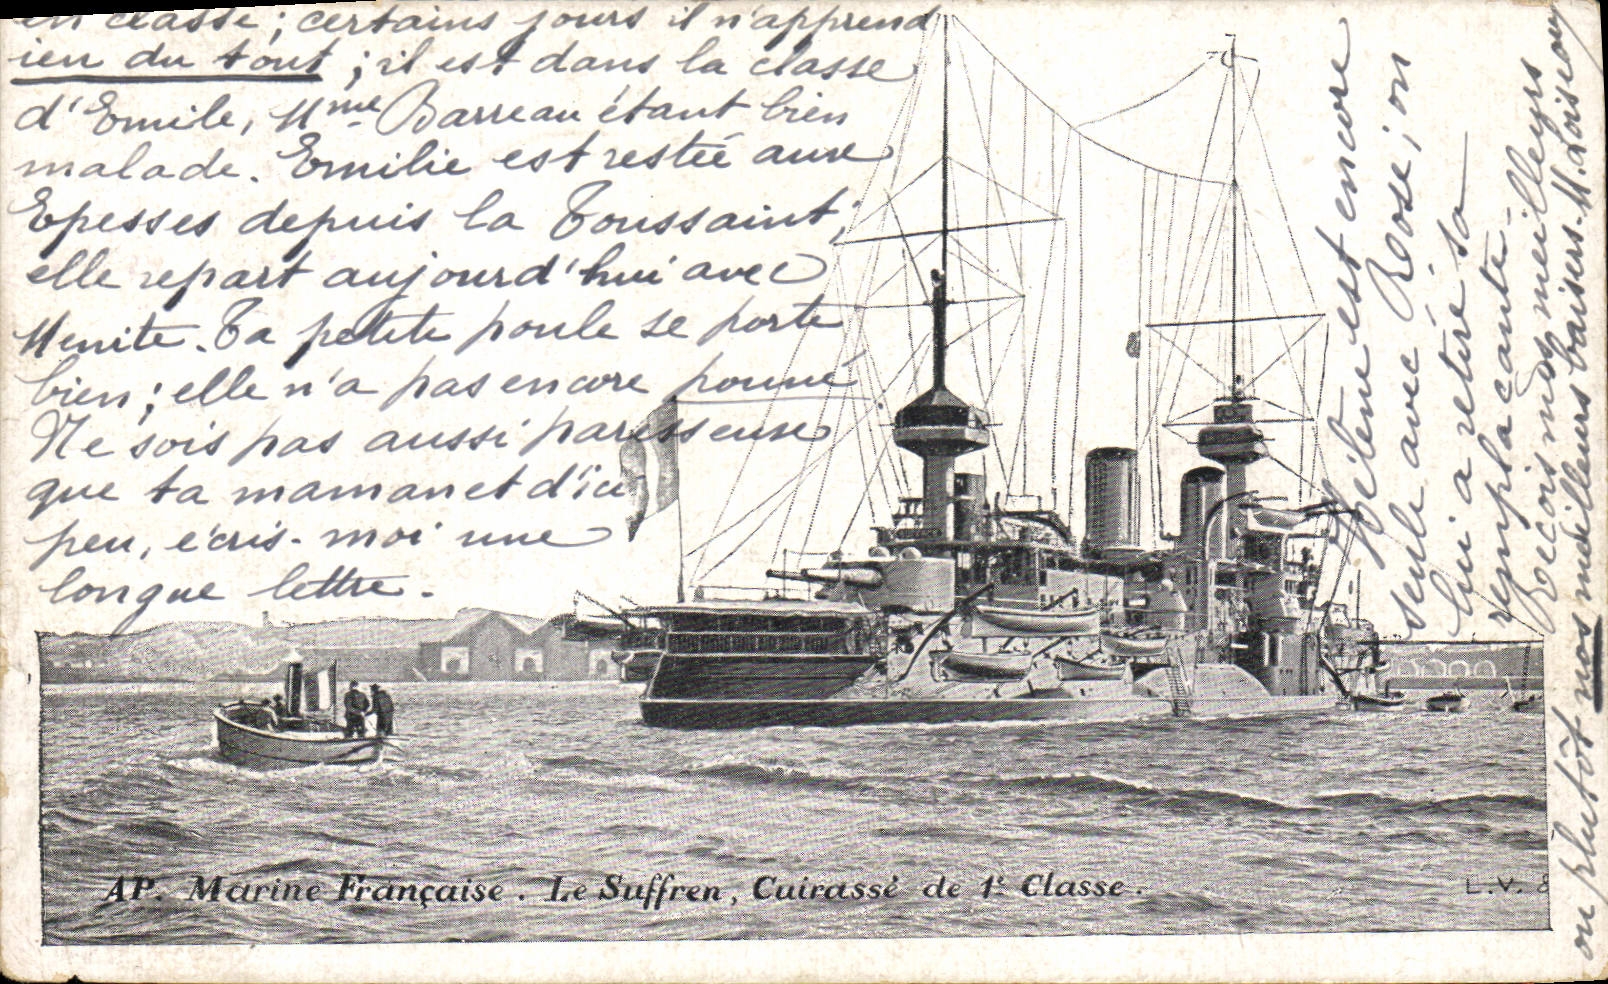 en classe ; certains jours il n'apprend
ien du tout ; il est dans la classe
d'Emile, Mme Barreau étant bien
malade. Emilie est restée aux
Epesses depuis la Toussaint ;
elle repart aujourd'hui avec
Menite. Ta petite poule se porte
bien ; elle n'a pas encore ponné
Ne sois pas aussi paresseuse
que ta maman et d'ici
peu, écris-moi une
longue lettre.
Hélène est encore
seule avec Rose ; on
lui a retiré sa
remplaçante.
Recois mes meilleurs
ou plutôt nos meilleurs baisers. M. Loiseau
AP. Marine Française. Le Suffren, Cuirassé de 1e Classe.
L.V. &